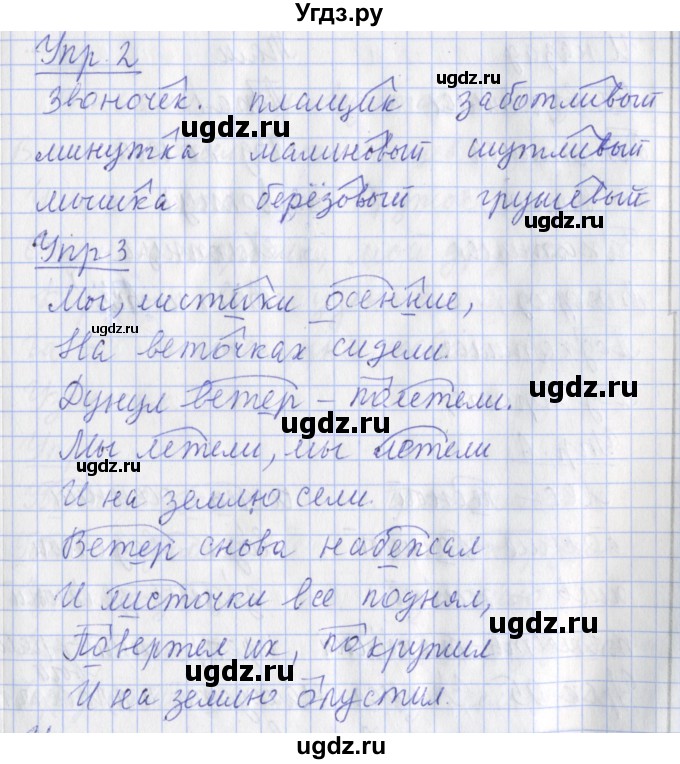 Угдз.ру
Упр. 2
Звоночек. плащик заботливый
минутка малиновый шутливый
мишка берёзовый грушевый
Упр 3
Мы, листики осенние,
На веточках сидели.
Дунул ветер – полетели.
Мы летели, мы летели
И на землю сели.
Ветер снова набежал
И листочки все поднял,
Повертел их, покружил
И на землю опустил.
ugdz.ru
ugdz.ru
ugdz.ru
ugdz.ru
ugdz.ru
ugdz.ru
ugdz.ru
ugdz.ru
ugdz.ru
ugdz.ru
ugdz.ru
ugdz.ru
ugdz.ru
ugdz.ru